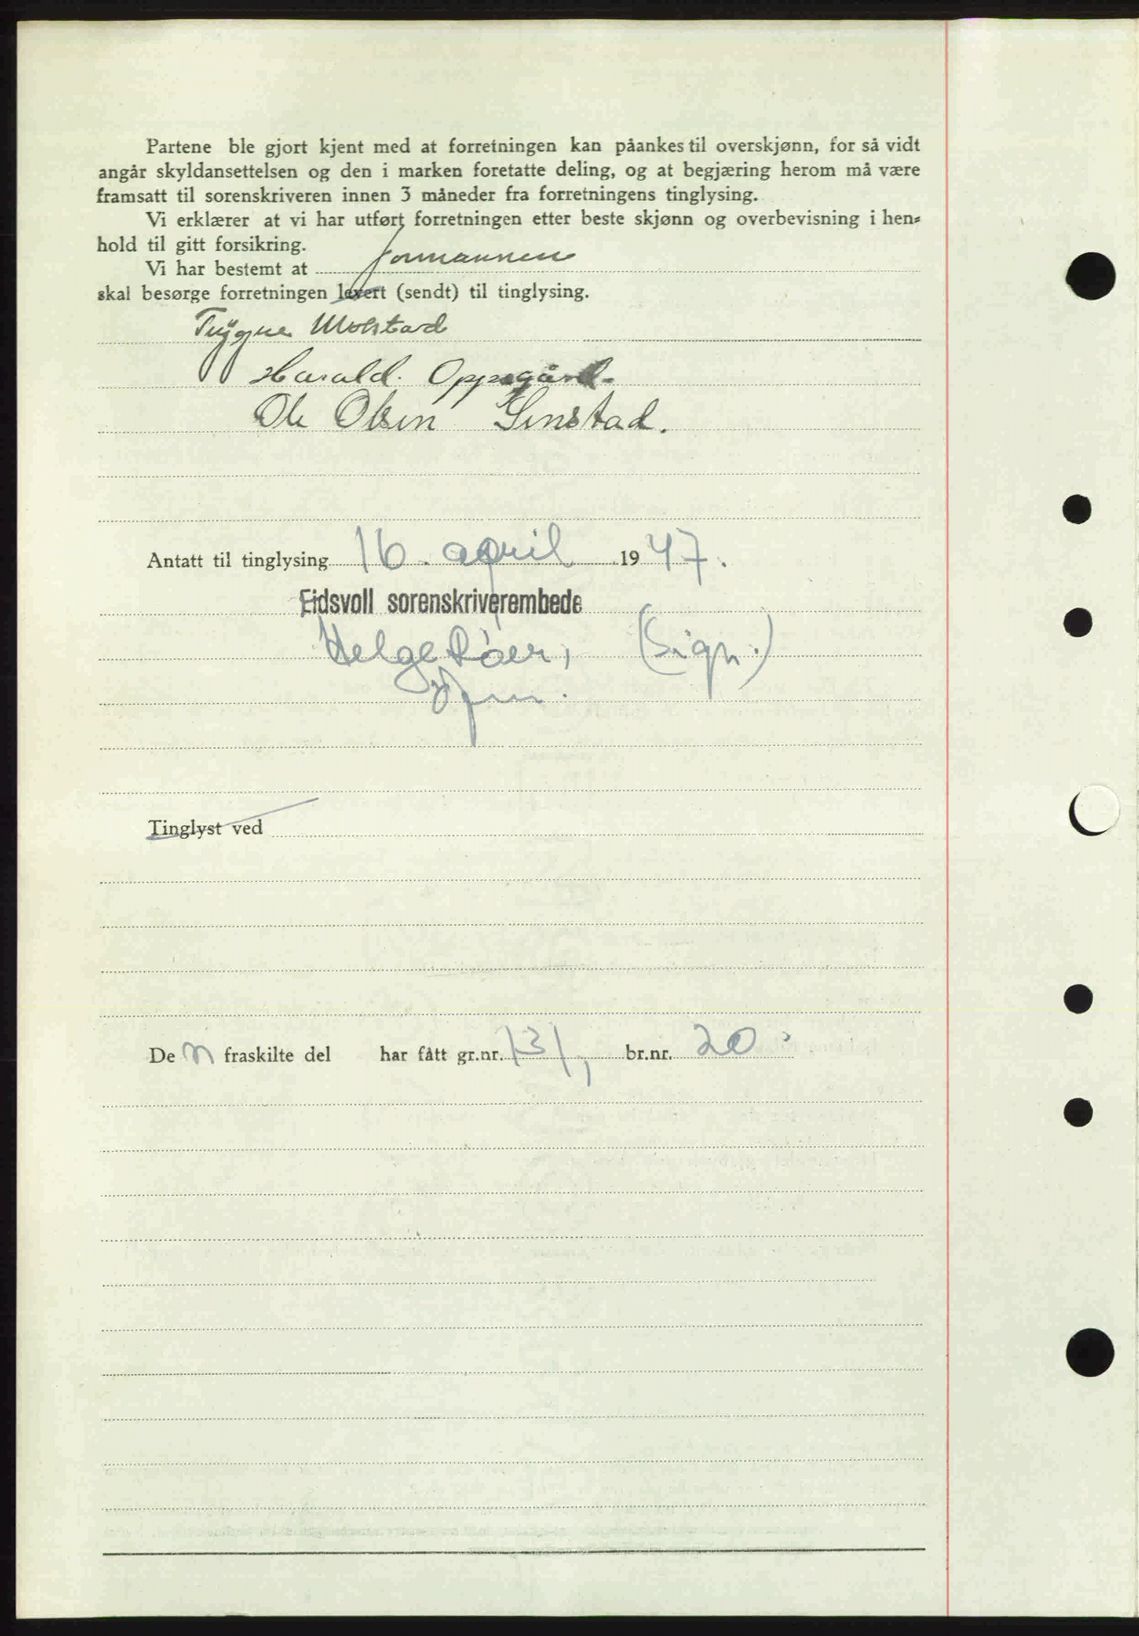 Partene ble gjort kjent med at forretningen kan påankes til overskjønn, for så vidt
angår skyldansettelsen og den i marken foretatte deling, og at begjæring herom må være
framsatt til sorenskriveren innen 3 måneder fra forretningens tinglysing.
Vi erklærer at vi har utført forretningen etter beste skjønn og overbevisning i hen-
hold til gitt forsikring.
Vi har bestemt at formannen
skal besørge forretningen levert (sendt) til tinglysing.
Trygve Molstad
Harald Oppegård.
Ole Olsen Finstad.
Antatt til tinglysing 16. april 1947.
Eidsvoll sorenskriverembede
Helge Røer, (sign.)
De n fraskilte del har fått gr.nr. 131, br.nr. 20.
Tinglyst ved